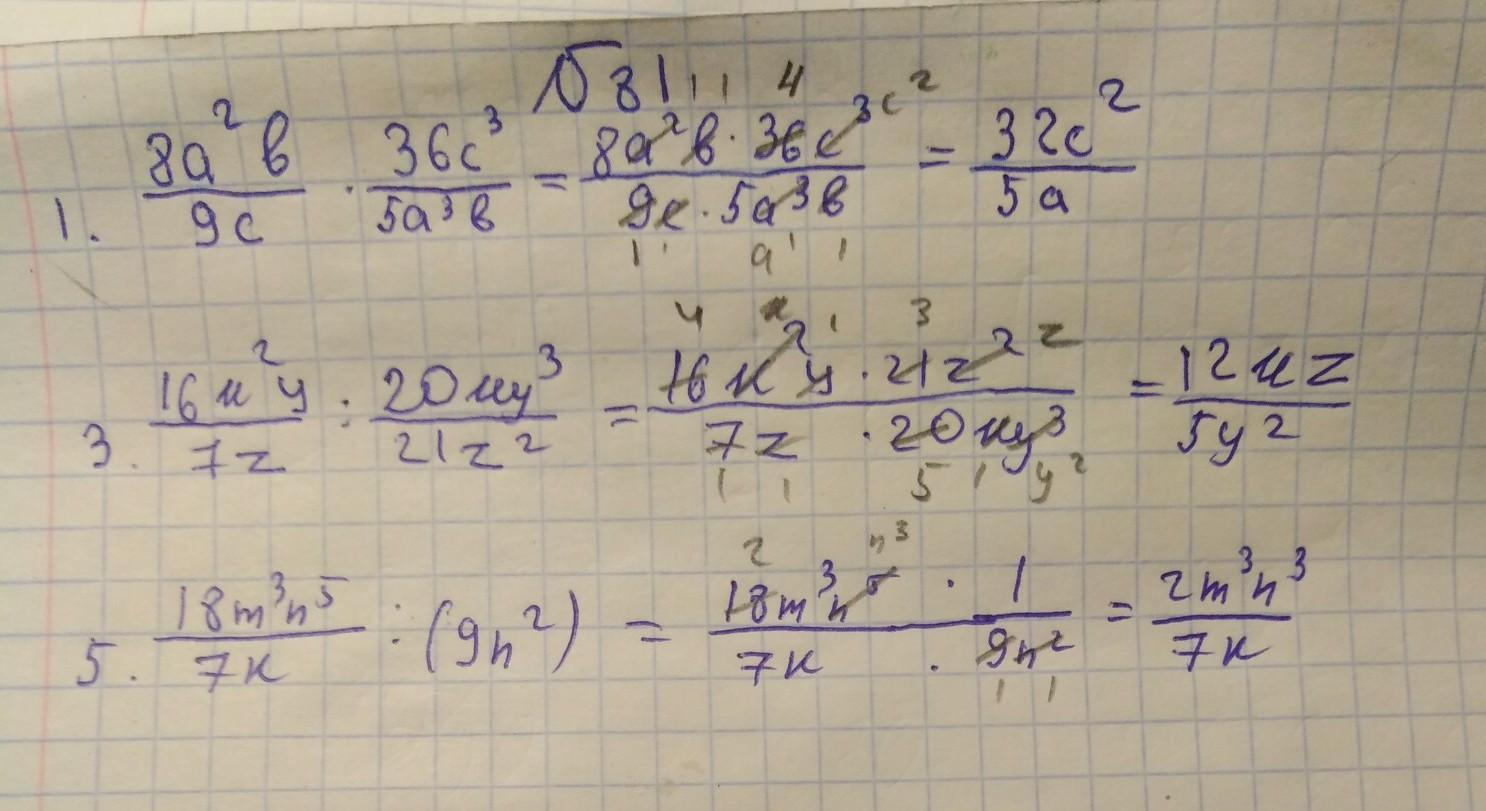 √81
1. 8a²b/9c · 36c³/5a³b = 8a²b · 36c³/9c · 5a³b = 32c²/5a
3. 16x²y/7z : 20xy³/21z² = 16x²y · 21z²/7z · 20xy³ = 12xz/5y²
5. 18m³n⁵/7k : (9n²) = 18m³n⁵ · 1/7k · 9n² = 2m³n³/7k